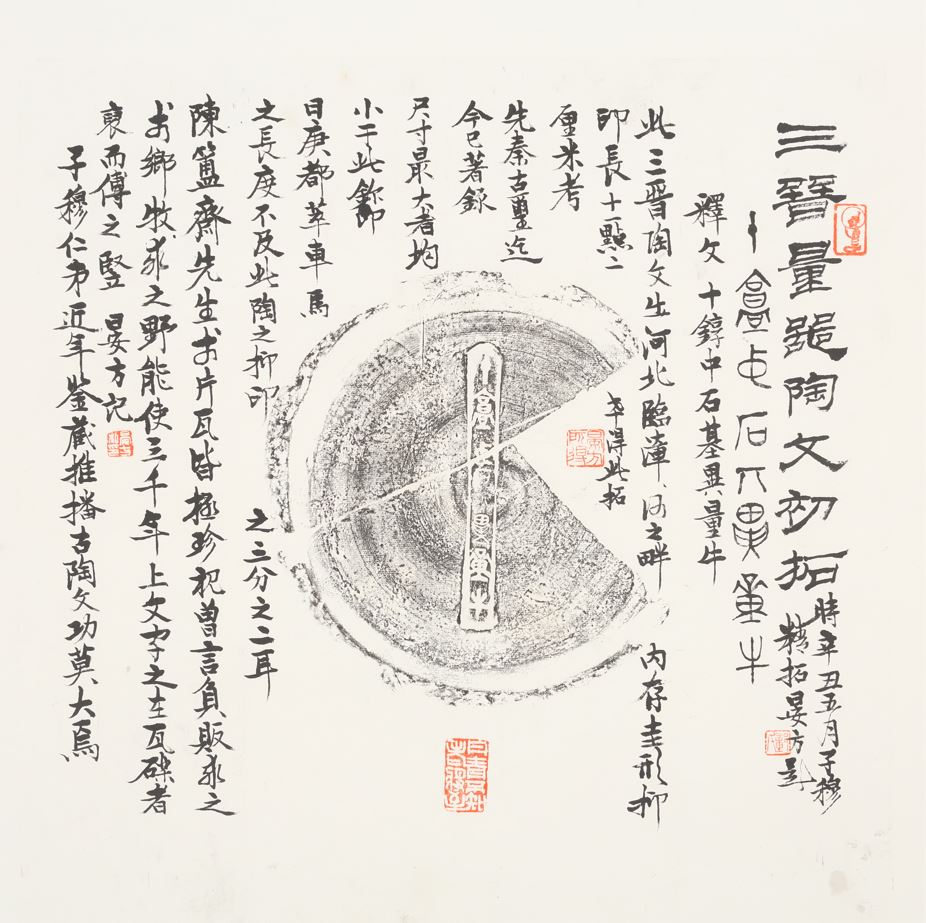 三晉量陶文初拓
時辛丑五月子穆
精拓晏方題
十中石丌異量牛
釋文 十錞中石基異量牛
此三晉陶文出河北臨漳、河之畔 內存圭形抑
印長十一點二
厘米考
先秦古璽迄
今已著錄
尺寸最大者均
小于此鉨即
日庚都萃車馬
之長度不及此陶之抑印
之三分之二耳
陳簠齋先生于片瓦皆極珍祀曾言負販求之
于鄉牧求之野能使三千年上文字之在瓦礫者
裒而傳之 竪 晏方記
子穆仁弟近年鑒藏推播古陶文功莫大焉
幸得此拓